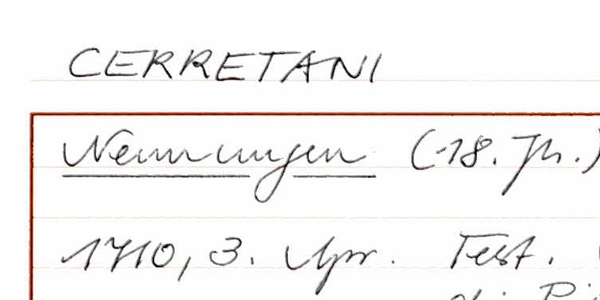 CERRETANI
Nennungen (18. Jh.)
1710, 3. Apr. Test.